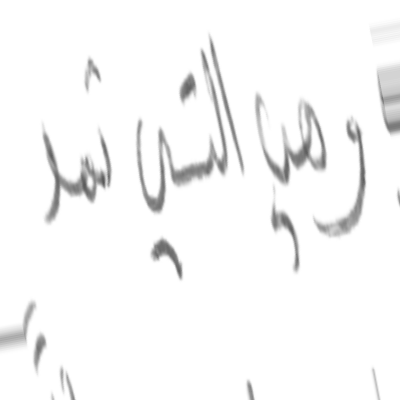 وهي التي تمد